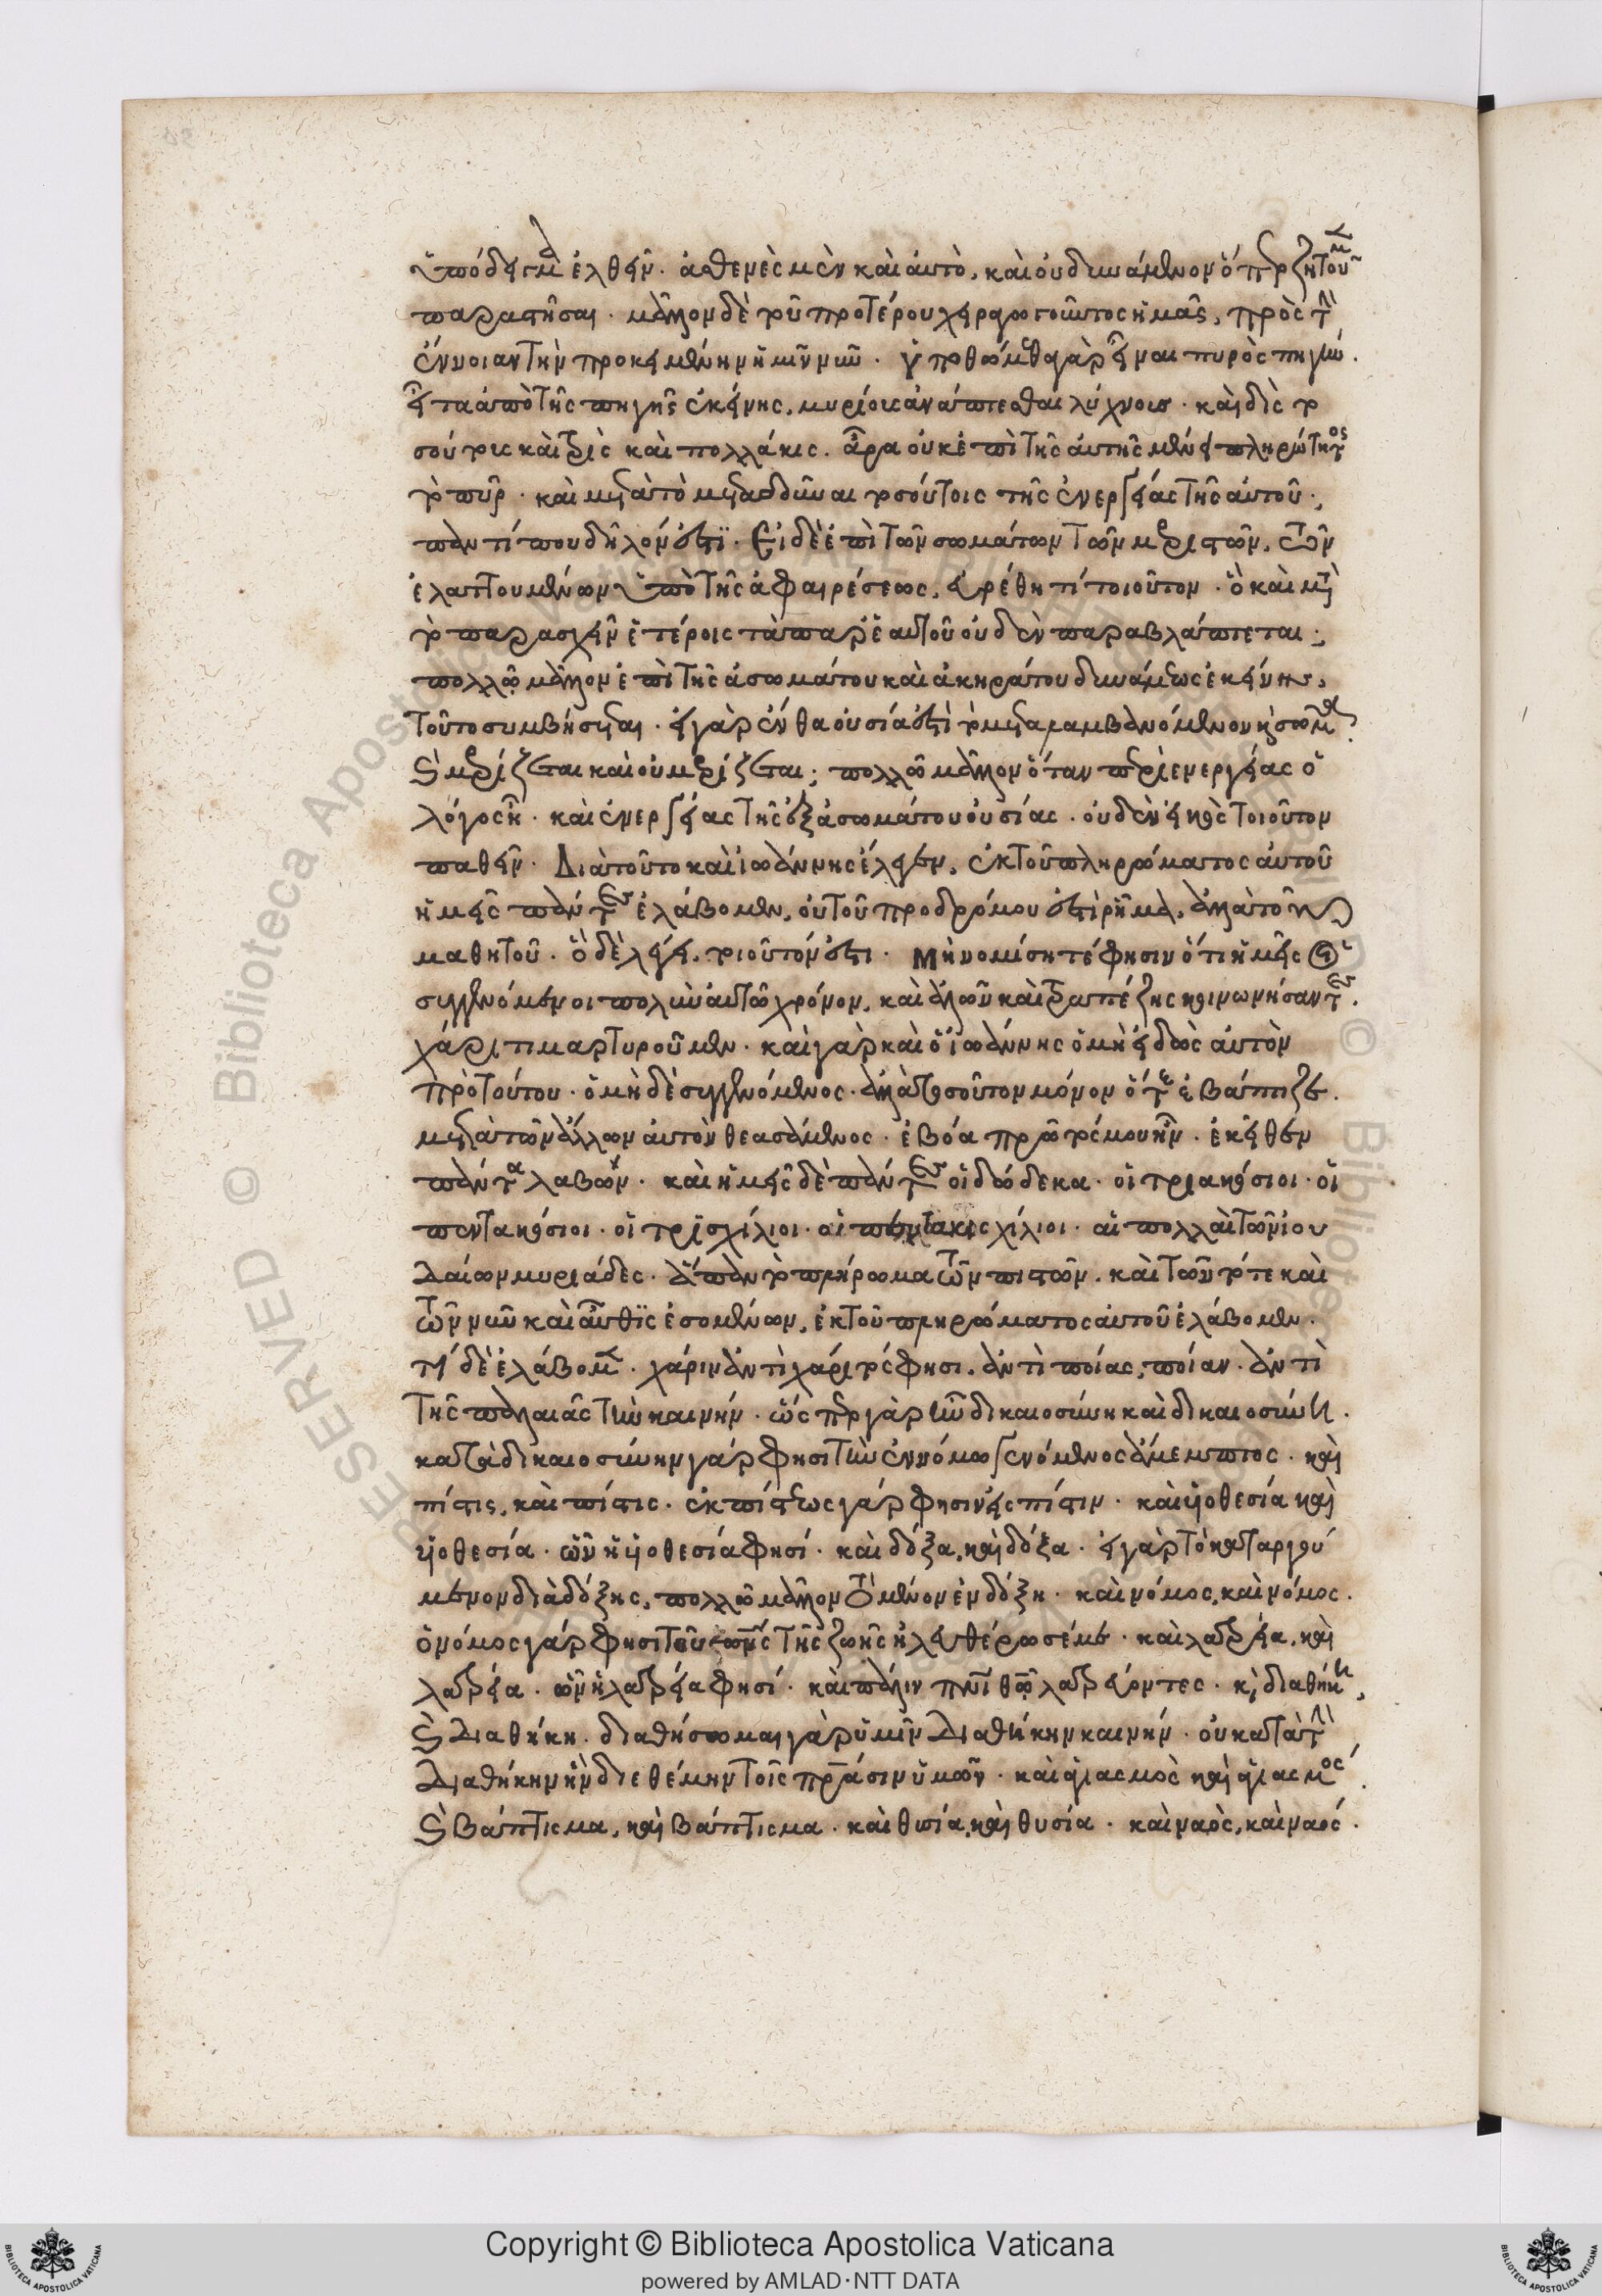 ὑπόδειγμα ἐλθεῖν. ἀσθενὲς μὲν καὶ αὐτὸ, καὶ οὐ δυνάμενον ὅπερ ζητοῦμεν
παραστῆσαι. μᾶλλον δὲ τοῦ προτέρου χειραγωγοῦντος ἡμᾶς, πρὸς τὴν
ἔννοιαν τὴν προκειμένην ἡμῖν νῦν. ὑποθώμεθα γὰρ εἶναι πυρὸς πηγήν.
εἶτα ἀπὸ τῆς πηγῆς ἐκείνης, μυρίους ἀνάπτεσθαι λύχνους. καὶ δὶς το
σούτους καὶ τρὶς καὶ πολλάκις. ἆρα οὐκ ἐπὶ τῆς αὐτῆς μένει πληρότητος
τὸ πῦρ. καὶ μετὰ τὸ μεταδοῦναι τοσούτοις τῆς ἐνεργείας τῆς αὐτοῦ;
παντί που δῆλόν ἐστι. Εἰ δὲ ἐπὶ τῶν σωμάτων τῶν μεριστῶν, τῶν
ἐλαττουμένων ὑπὸ τῆς ἀφαιρέσεως, εὑρέθη τί τοιοῦτον. ὃ καὶ μετὰ
τὸ παρασχεῖν ἑτέροις τὰ παρ' ἑαυτοῦ οὐδὲν παραβλάπτεται;
πολλῷ μᾶλλον ἐπὶ τῆς ἀσωμάτου καὶ ἀκηράτου δυνάμεως ἐκείνης,
τοῦτο συμβήσεται. εἰ γὰρ ἔνθα οὐσία ἐστὶ τὸ μεταλαμβανόμενον καὶ σῶμα,
καὶ μερίζεται καὶ οὐ μερίζεται; πολλῷ μᾶλλον ὅταν περὶ ἐνεργείας ὁ
λόγος ᾖ. καὶ ἐνεργείας τῆς ἐξ ἀσωμάτου οὐσίας. οὐδὲν εἰκὸς τοιοῦτον
παθεῖν. Διὰ τοῦτο καὶ ἰωάννης ἔλεγεν, ἐκ τοῦ πληρώματος αὐτοῦ
ἡμεῖς πάντες ἐλάβομεν, οὐ τοῦ προδρόμου ἐστὶ ῥῆμα, ἀλλὰ τοῦ
μαθητοῦ. ὃ δὲ λέγει, τοιοῦτόν ἐστι. Μὴ νομίσητέ φησιν ὅτι ἡμεῖς οἱ
συγγενόμενοι πολὺν αὐτῷ χρόνον, καὶ ἁλῶν καὶ τραπέζης κοινωνήσαντες.
χάριτι μαρτυροῦμεν. καὶ γὰρ καὶ ὁ ἰωάννης ὁ μὴ εἰδὼς αὐτὸν
πρὸ τούτου. ὁ μὴ δὲ συγγενόμενος. ἀλλὰ τοσοῦτον μόνον ὅτε ἐβάπτιζε.
μετὰ τῶν ἄλλων αὐτὸν θεασάμενος. ἐβόα πρῶτός μου ἦν. ἐκεῖθεν
πάντα λαβών. καὶ ἡμεῖς δὲ πάντες οἱ δώδεκα. οἱ τριακόσιοι. οἱ
πεντακόσιοι. οἱ τρισχίλιοι. οἱ πεντακισχίλιοι. αἱ πολλαὶ τῶν ἰου
δαίων μυριάδες. ἅπαν τὸ πλήρωμα τῶν πιστῶν, καὶ τῶν τότε καὶ
τῶν νῦν καὶ αὖθις ἐσομένων, ἐκ τοῦ πληρώματος αὐτοῦ ἐλάβομεν.
τί δὲ ἐλάβομεν. χάριν ἀντὶ χάριτός φησι. ἀντὶ ποίας, ποίαν. ἀντὶ
τῆς παλαιᾶς τὴν καινήν. ὥσπερ γὰρ ἦν δικαιοσύνη καὶ δικαιοσύνη.
κατὰ δικαιοσύνην γάρ φησι τὴν ἐν νόμῳ γενόμενος ἄμεμπτος. καὶ
πίστις, καὶ πίστις. ἐκ πίστεως γάρ φησιν εἰς πίστιν. καὶ υἱοθεσία καὶ
υἱοθεσία. ὧν ἡ υἱοθεσία φησί. καὶ δόξα, καὶ δόξα. εἰ γὰρ τὸ καταργού
μενον διὰ δόξης, πολλῷ μᾶλλον τὸ μένον ἐν δόξῃ. καὶ νόμος, καὶ νόμος.
ὁ νόμος γάρ φησι τοῦ πνς τῆς ζωῆς ἠλευθέρωσέ με. καὶ λατρεία, καὶ
λατρεία. ὧν ἡ λατρεία φησί. καὶ πάλιν πνι θῶ λατρεύοντες. καὶ διαθήκη,
καὶ διαθήκη. διαθήσομαι γὰρ ὑμῖν διαθήκην καινήν. οὐ κατὰ τὴν
διαθήκην ἣν διεθέμην τοῖς πράσιν ὑμῶν. καὶ ἁγιασμὸς καὶ ἁγιασμός.
καὶ βάπτισμα, καὶ βάπτισμα. καὶ θυσία, καὶ θυσία. καὶ ναὸς, καὶ ναός.
Copyright © Biblioteca Apostolica Vaticana
powered by AMLAD·NTT DATA